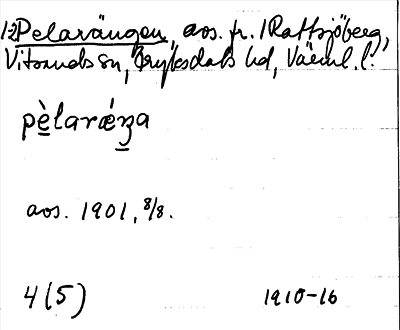 1-2 Pelarängen, aos. fr. 1 Rattsjöberg,
Vitsands sn, Fryksdals hd, Värml. l.
pèlarǽŋa
aos. 1901, 8/8.
4 (5) 1910-16